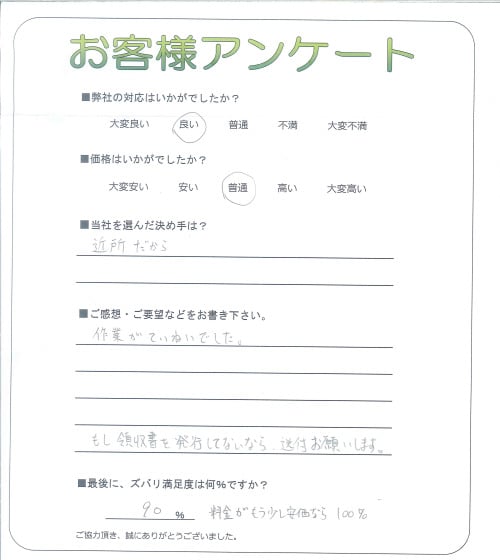 お客様アンケート
■弊社の対応はいかがでしたか？
大変良い 良い 普通 不満 大変不満
■価格はいかがでしたか？
大変安い 安い 普通 高い 大変高い
■当社を選んだ決め手は？
近所だから
■ご感想・ご要望などをお書き下さい。
作業がていねいでした。
もし領収書を発行してないなら、送付お願いします。
■最後に、ズバリ満足度は何%ですか？
90 % 料金がもう少し安価なら100%
ご協力頂き、誠にありがとうございました。